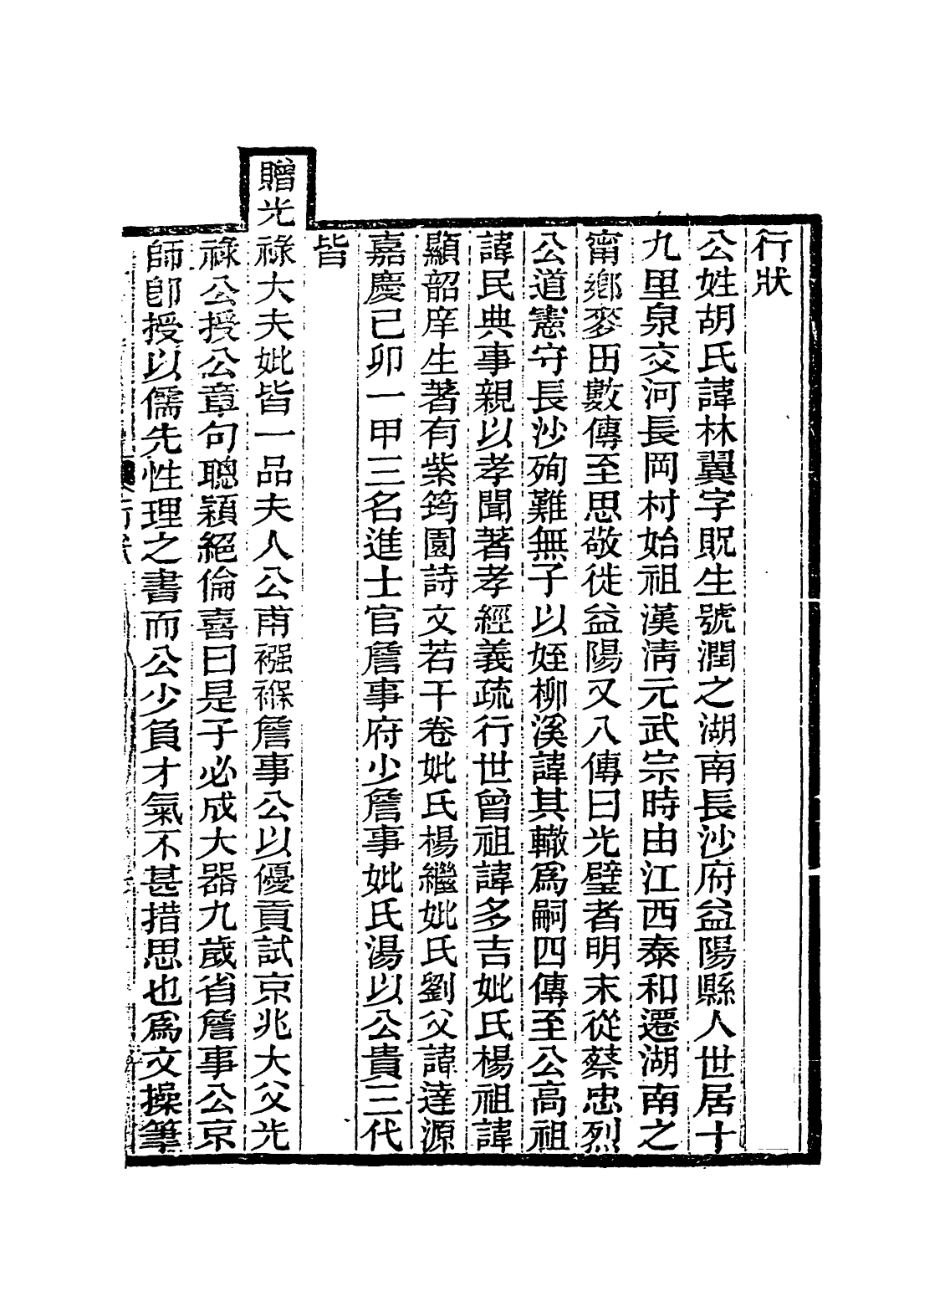 行狀
公姓胡氏諱林翼字貺生號潤之湖南長沙府益陽縣人世居十
九里泉交河長岡村始祖漢淸元武宗時由江西泰和遷湖南之
甯鄉麥田數傳至思敬徙益陽又八傳曰光璧者明末從蔡忠烈
公道憲守長沙殉難無子以姪柳溪諱其轍爲嗣四傳至公高祖
諱民典事親以孝聞著孝經義疏行世曾祖諱多吉妣氏楊祖諱
顯韶庠生著有紫筠園詩文若干卷妣氏楊繼妣氏劉父諱達源
嘉慶己卯一甲三名進士官詹事府少詹事妣氏湯以公貴三代
皆
贈光祿大夫妣皆一品夫人公甫襁褓詹事公以優貢試京兆大父光
祿公授公章句聰穎絕倫喜曰是子必成大器九歲省詹事公京
師卽授以儒先性理之書而公少負才氣不甚措思也爲文操筆